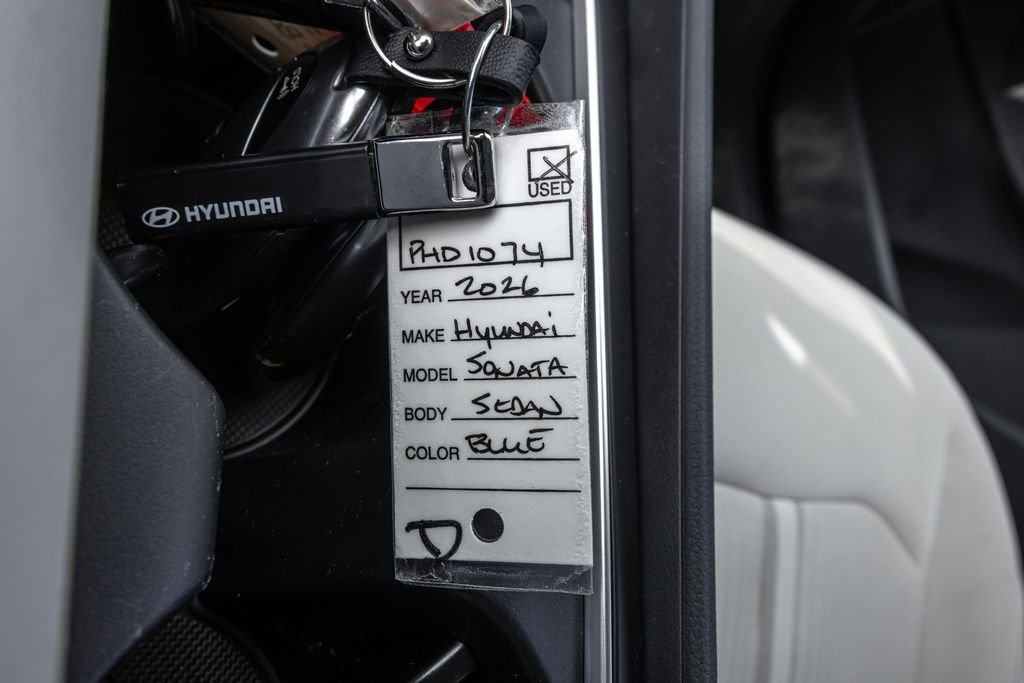 HOLD
USED
HYUNDAI
PHD1074
YEAR 2026
MAKE Hyundai
MODEL SONATA
BODY SEDAN
COLOR BLUE
D